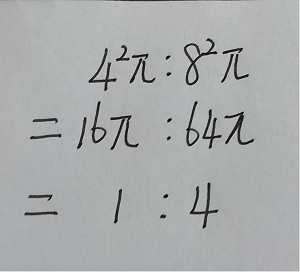 4²π:8²π
=16π:64π
= 1 :4